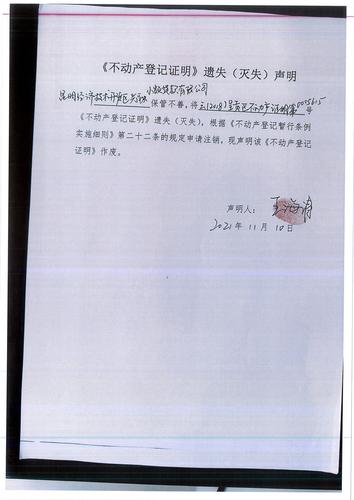 《不动产登记证明》遗失（灭失）声明
小额贷款有限公司
昆明经济技术开发区 保管不善，将云(2018)呈贡区不动产证明第0005615号
《不动产登记证明》遗失（灭失），根据《不动产登记暂行条例
实施细则》第二十二条的规定申请注销，现声明该《不动产登记
证明》作废。
声明人：
2021年11月10日